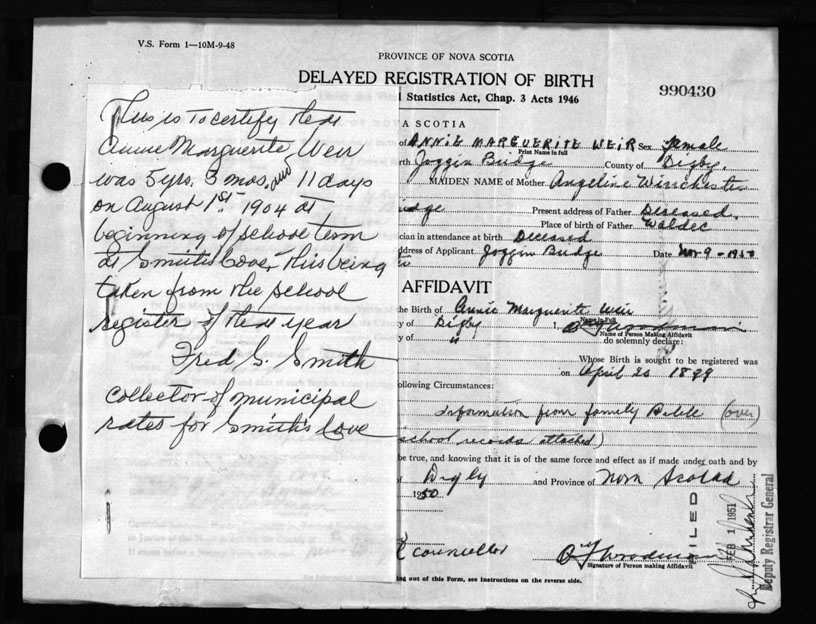 V.S. Form 1—10M-9-48
PROVINCE OF NOVA SCOTIA
DELAYED REGISTRATION OF BIRTH
990430
l Statistics Act, Chap. 3 Acts 1946
This is to certify that
Annie Marguerite Weir
was 5 yrs. 3 mos. and 11 days
on August 1st. 1904 at
beginning of school term
at Smith's Cove, this being
taken from the school
register of that year
Fred G. Smith
collector of municipal
rates for Smith's Cove
A SCOTIA
of ANNIE MARGUERITE WEIR Sex Female
Print Name in full
rth Joggin Bridge County of Digby.
MAIDEN NAME of Mother Angeline Winchester
idge Present address of Father Deceased.
Place of birth of Father Waldec
cian in attendance at birth Deceased
ddress of Applicant Joggin Bridge Date Nov 9-1950
AFFIDAVIT
the Birth of Annie Marguerite Weir
Name in Full
y of Digby I, O Woodman
Name of Person Making Affidavit
y of " do solemnly declare:
Whose Birth is sought to be registered was
on April 20 1899
ollowing Circumstances:
Information from family Bible (over)
school records attached)
be true, and knowing that it is of the same force and effect as if made under oath and by
of Digby and Province of Nova Scotia
1950
councillor O Woodman
Signature of Person making Affidavit
ng out of this Form, see Instructions on the reverse side.
FILED
FEB 1 1951
Deputy Registrar General